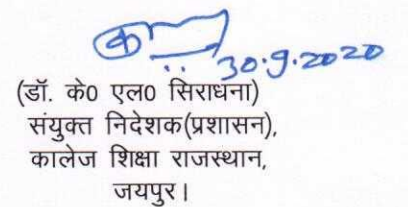 30.9.2020
(डॉ. के0 एल0 सिराधना)
संयुक्त निदेशक(प्रशासन),
कालेज शिक्षा राजस्थान,
जयपुर।